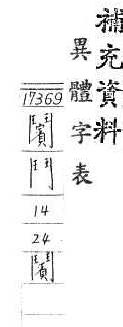 補充資料
異體字表
17369
䰗
鬥
14
24